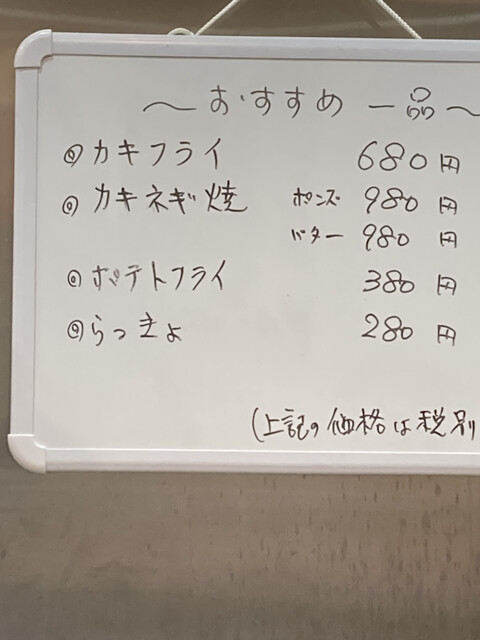 ～おすすめ 一品～
◎カキフライ 680円
◎カキネギ焼 ポンズ 980円
バター 980円
◎ポテトフライ 380円
◎らっきょ 280円
(上記の価格は税別